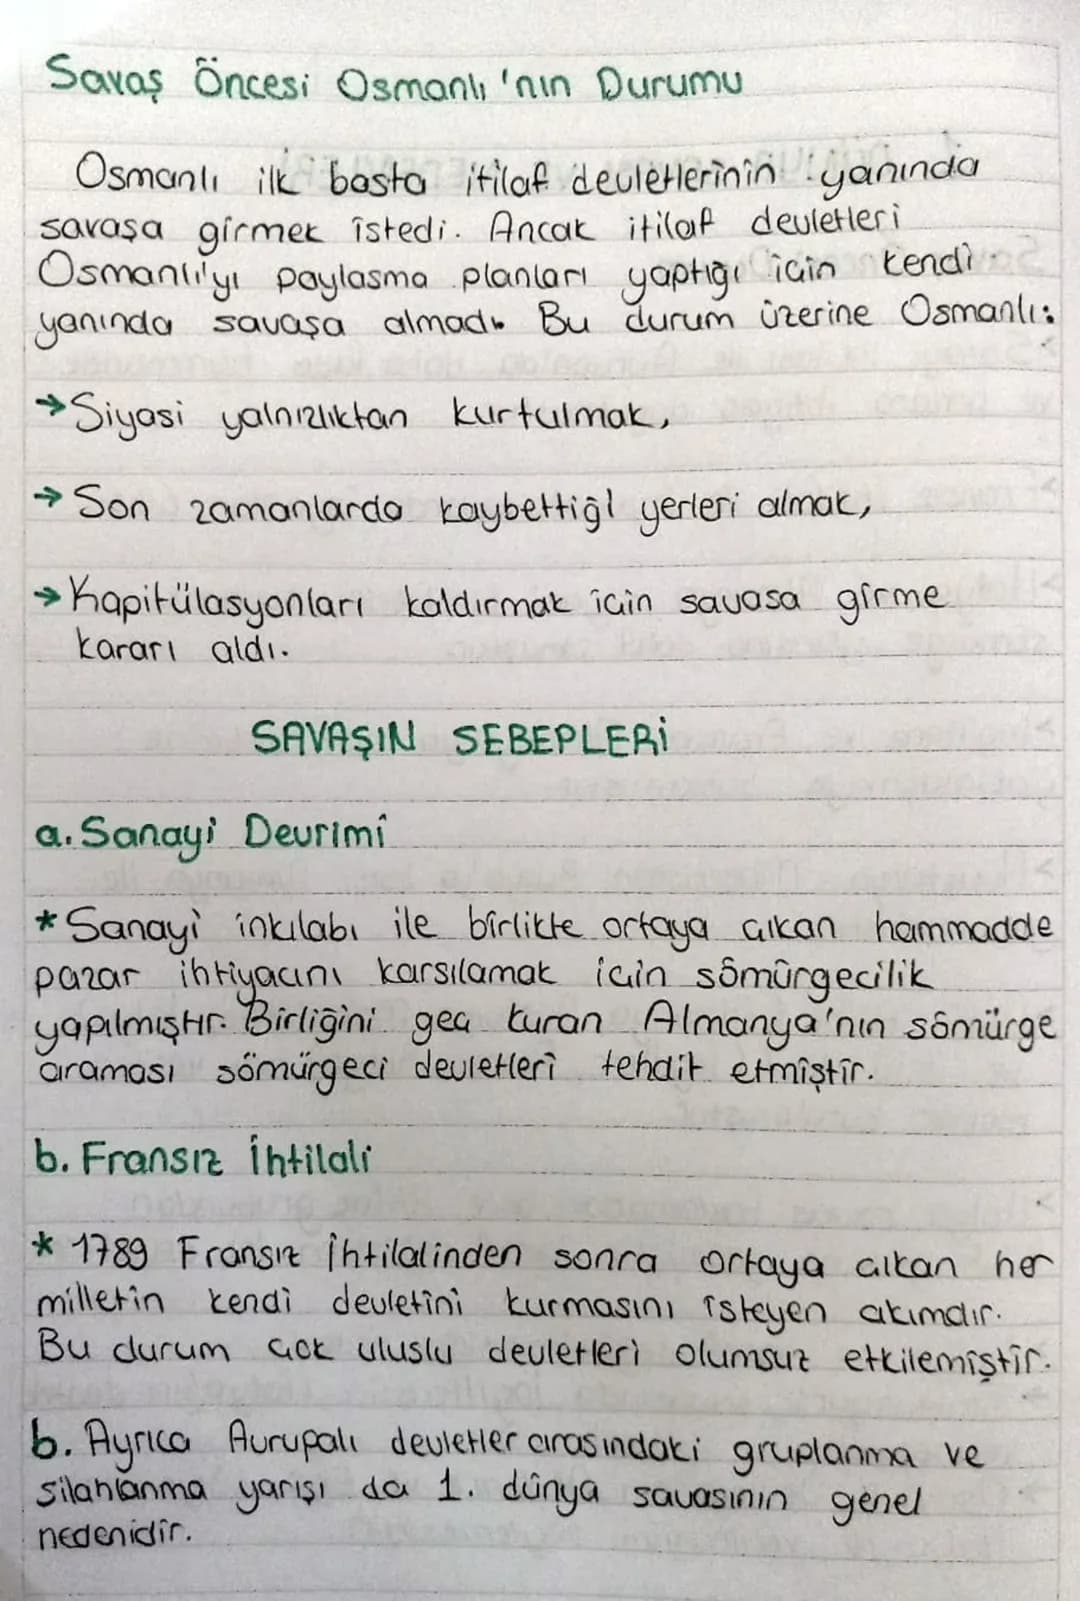 Savaş Öncesi Osmanlı'nın Durumu
Osmanlı ilk başta itilaf devletlerinin yanında
savaşa girmek istedi. Ancak itilaf devletleri
Osmanlı'yı paylasma planları yaptığı için kendi
yanında savaşa almadı. Bu durum üzerine Osmanlı:
→Siyasi yalnızlıktan kurtulmak,
→Son zamanlarda kaybettiği yerleri almak,
→Kapitülasyonları kaldırmak için savasa girme
kararı aldı.
SAVAŞIN SEBEPLERİ
a. Sanayi Devrimi
*Sanayi inkılabı ile birlikte ortaya çıkan hammadde
pazar ihtiyacını karsılamak için sömürgecilik
yapılmıştır. Birliğini geç kuran Almanya'nın sömürge
araması sömürgeci devletleri tehdit etmiştir.
b. Fransız İhtilali
* 1789 Fransız İhtilalinden sonra ortaya çıkan her
milletin kendi devletini kurmasını isteyen akımdır.
Bu durum çok uluslu devletleri olumsuz etkilemiştir.
b. Ayrıca Avrupalı devletler arasındaki gruplanma ve
silahlanma yarışı da 1. dünya savasının genel
nedenidir.